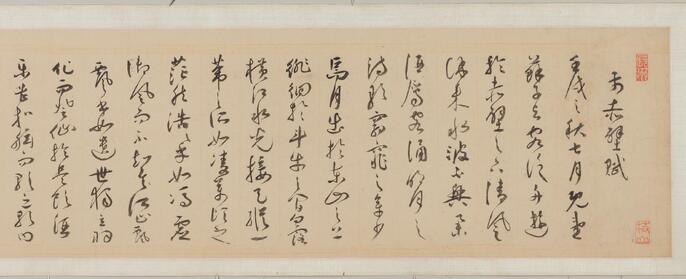 前赤壁賦
壬戌之秋七月既望
蘇子與客泛舟遊
於赤壁之下清風
徐來水波不興舉
酒屬客誦明月之
詩歌窈窕之章少
焉月出於東山之上
徘徊於斗牛之間白露
橫江水光接天縱一
葦之所如凌萬頃之
茫然浩浩乎如馮虛
御風而不知其所止飄
飄乎如遺世獨立羽
化而登仙於是飲酒
樂甚扣舷而歌之歌曰